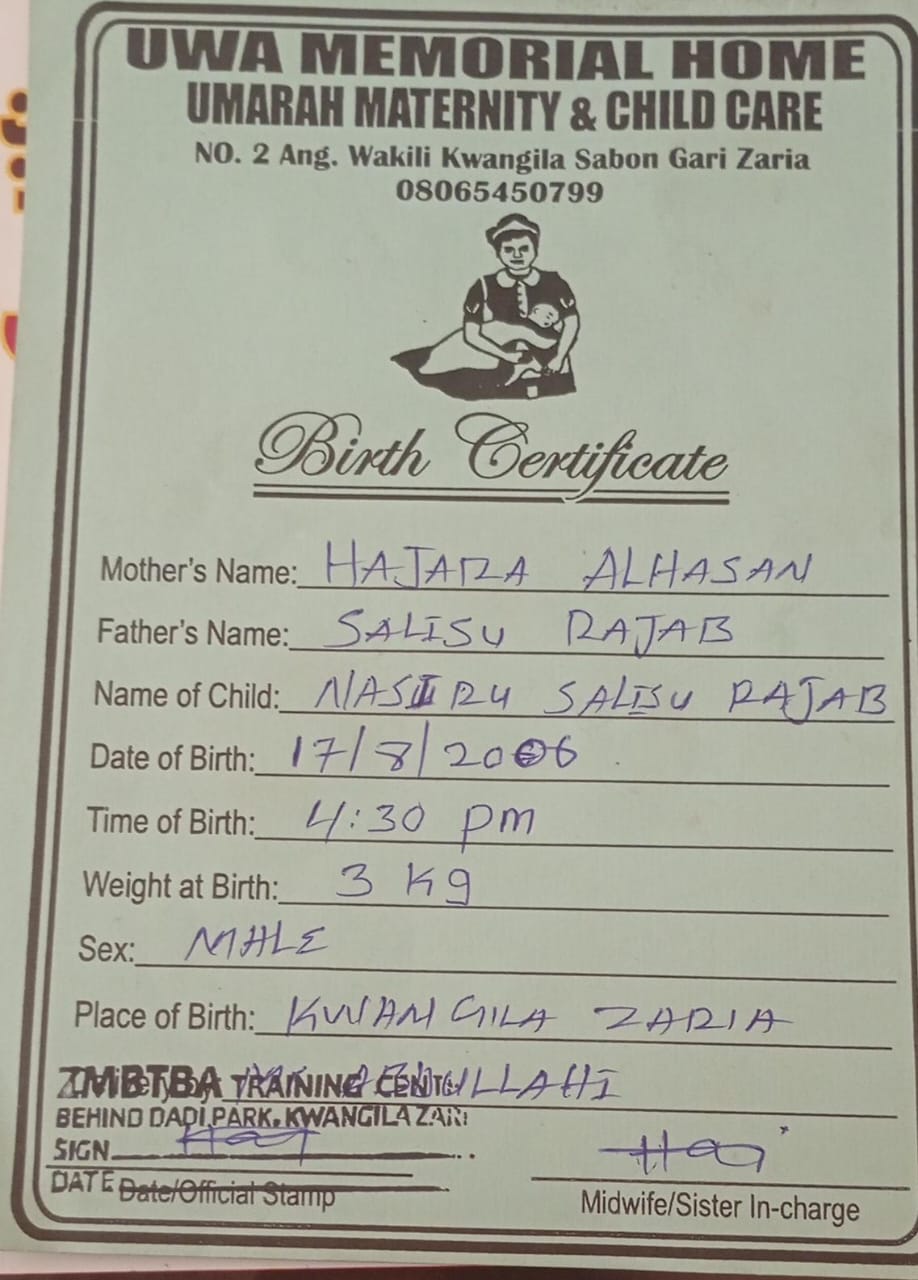 UWA MEMORIAL HOME
UMARAH MATERNITY & CHILD CARE
NO. 2 Ang. Wakili Kwangila Sabon Gari Zaria
08065450799
Birth Certificate
Mother's Name: HAJARA ALHASAN
Father's Name: SALISU RAJAB
Name of Child: NASIRU SALISU RAJAB
Date of Birth: 17/8/2006
Time of Birth: 4:30 pm
Weight at Birth: 3 Kg
Sex: MALE
Place of Birth: KWANGILA ZARIA
ZMBTBA TRAINING CENT ABDULLAHI
BEHIND DADI PARK, KWANGILA ZARI
SIGN
DATE Date/Official Stamp
Midwife/Sister In-charge